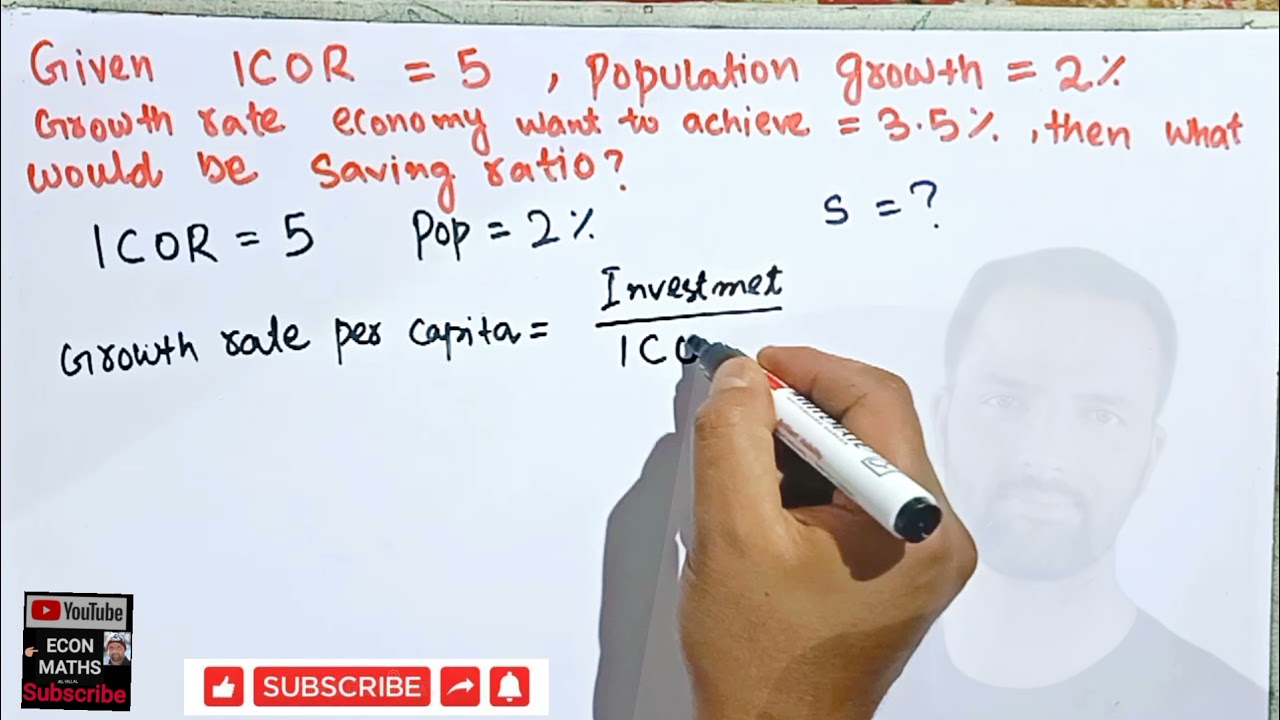 Given ICOR = 5 , Population growth = 2%
Growth rate economy want to achieve = 3.5% , then what
would be saving ratio?
ICOR = 5 Pop = 2% S = ?
Growth rate per capita = Investmet
ICO
YouTube
ECON
MATHS
Subscribe
SUBSCRIBE